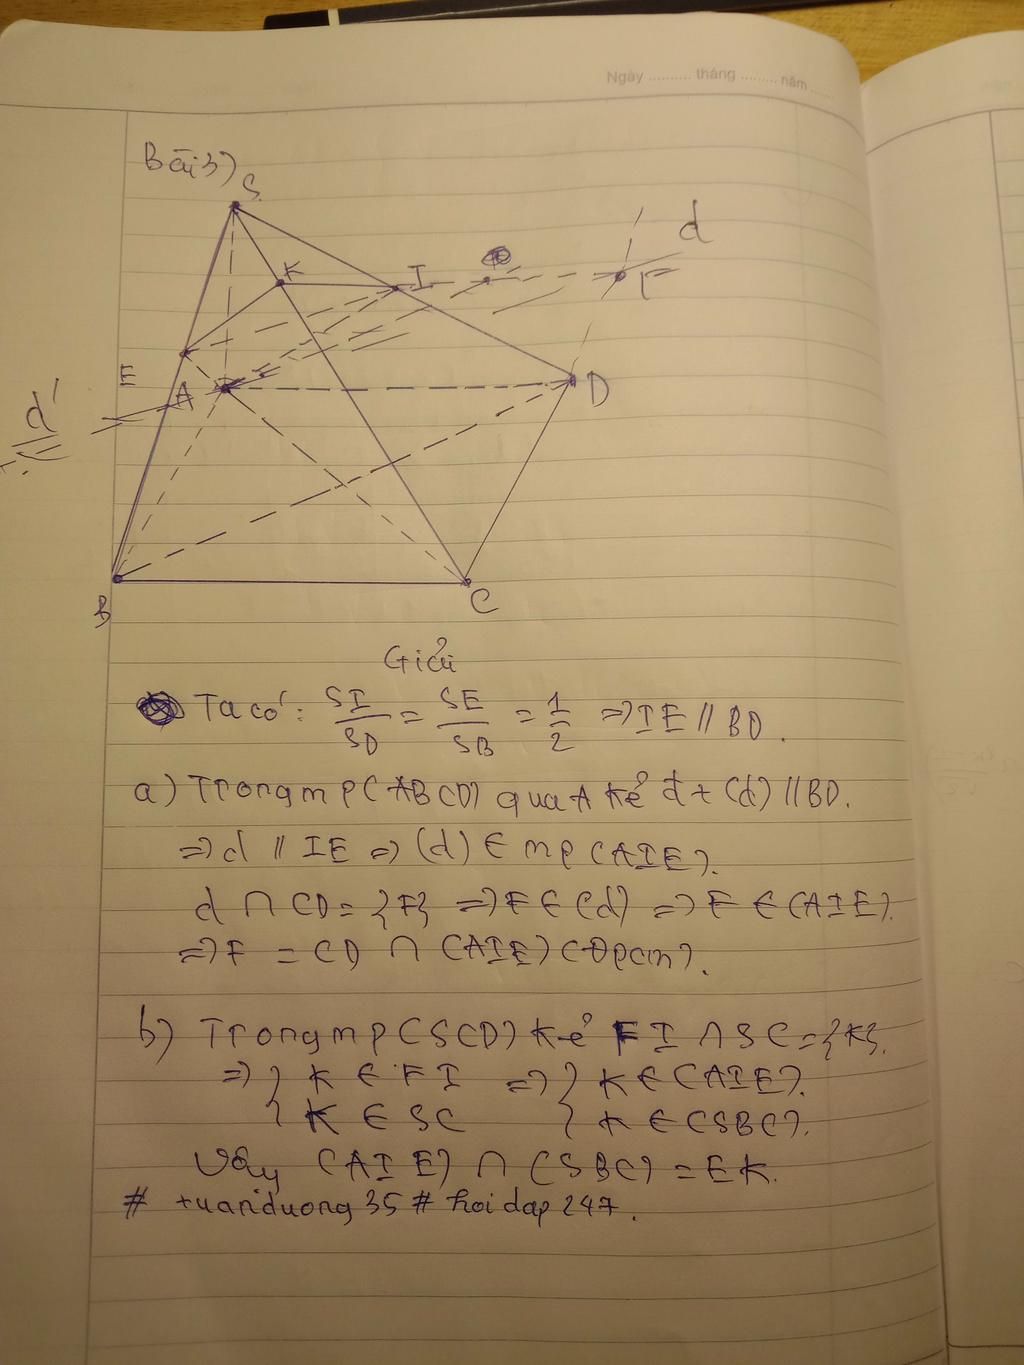 Ngày .......... tháng ......... năm ......
Bài 3)
S
d
K
I
F
E
A
D
d'
B
C
Giải
Ta có: SI/SD = SE/SB = 1/2 => IE // BD.
a) Trong mp (ABCD) qua A kẻ đt (d) // BD.
=> d // IE => (d) ∈ mp (AIE).
d ∩ CD = {F} => F ∈ (d) => F ∈ (AIE).
=> F = CD ∩ (AIE) (Đpcm).
b) Trong mp (SCD) kẻ FI ∩ SC = {K}.
=> { K ∈ FI => { K ∈ (AIE).
{ K ∈ SC { K ∈ (SBC).
Vậy (AIE) ∩ (SBC) = EK.
# tuanduong35 # hoidap247.